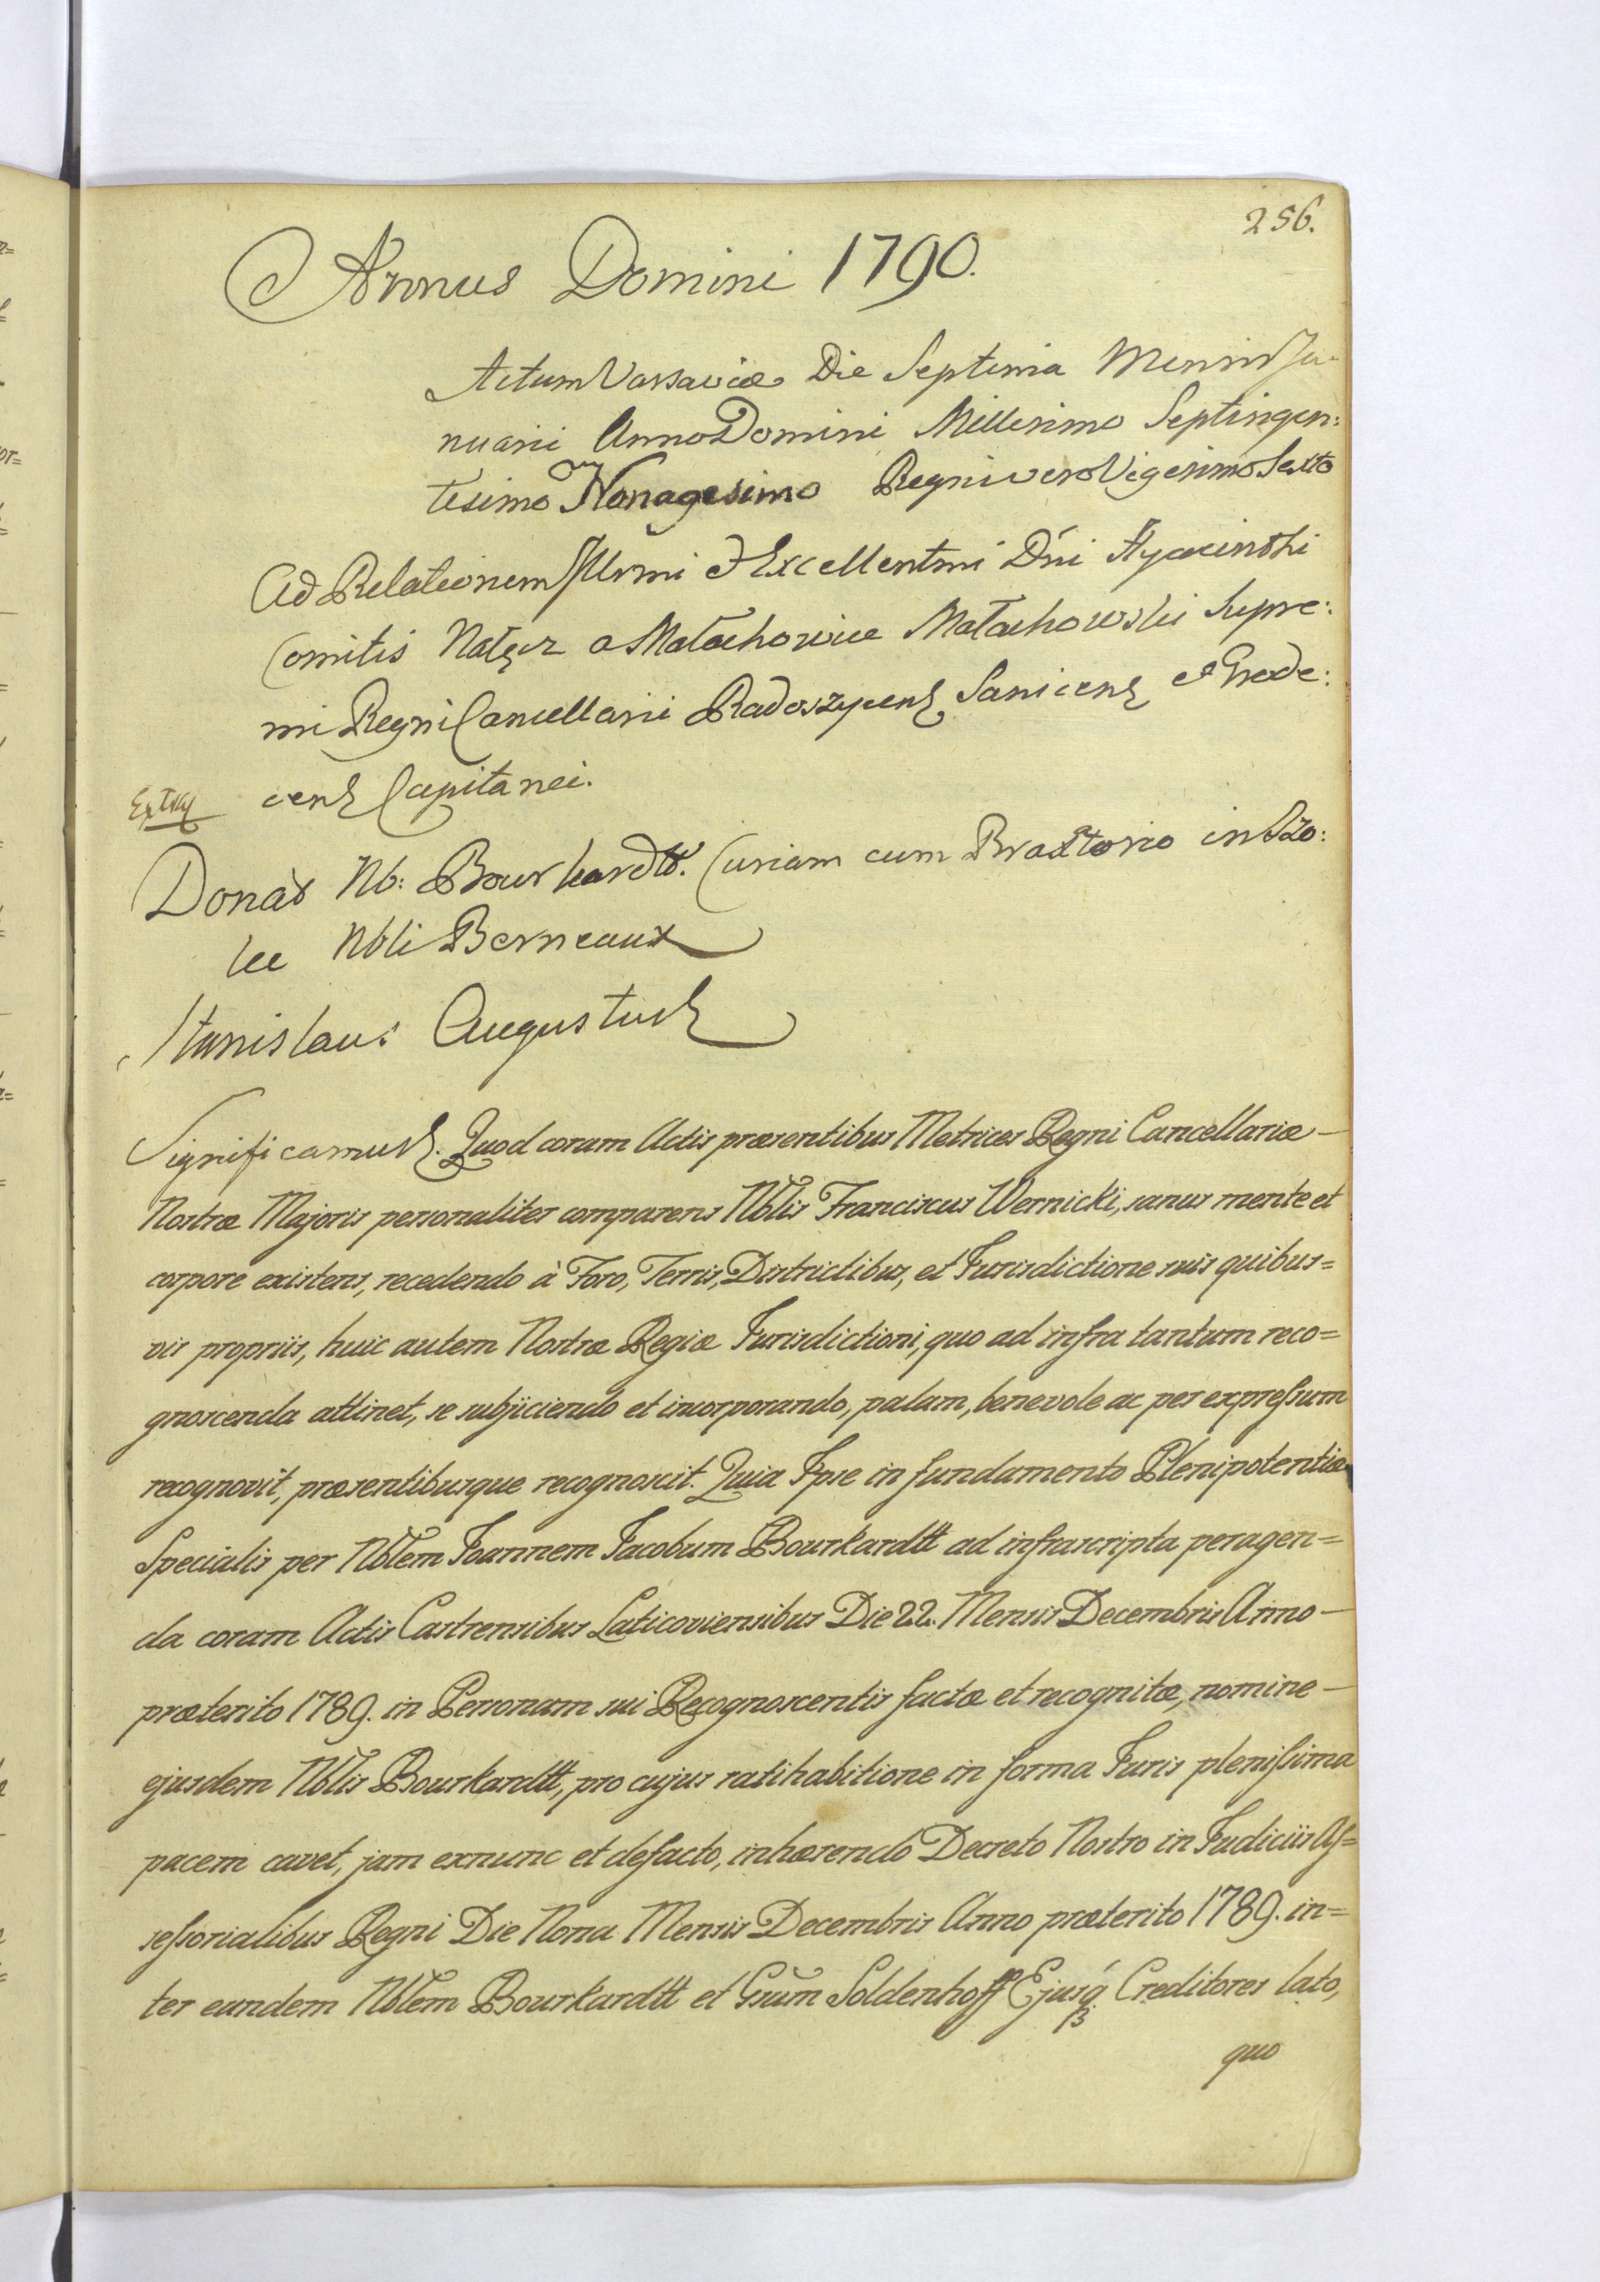 256.
Annus Domini 1790.
Actum Varsaviæ Die Septima Mensis Ja-
nuarii Anno Domini Millesimo Septingen:
tesimo Nonagesimo Regni vero Vigesimo Sexto
Ad Relationem Illrmi et Excellentmi Dni Hyacinthi
Comitis Nałęcz a Małachowice Małachowski Supre:
mi Regni Cancellarii Radoszycen Sanicen et Grode:
cen Capitanei.
Extrad
Donat Nb: Bourkardtt. Curiam cum Braxtorio in Szo:
lec Nbli Berneaux
Stanislaus Augustus
Significamus. Quod coram Actis præsentibus Metrices Regni Cancellariæ —
Nostræ Majoris personaliter comparens Nblis Franciscus Wernicki, sanus mente et
corpore existens, recedendo à Foro, Terris, Districtibus, et Jurisdictione suis quibus=
vis propriis, huic autem Nostræ Regiæ Jurisdictioni, quo ad infra tantum reco=
gnoscenda attinet, se subjiciendo et incorporando, palam, benevole ac per expressum
recognovit, præsentibusque recognoscit. Quia Ipse in fundamento Plenipotentiæ
Specialis per Nblem Joannem Jacobum Bourkardtt ad infrascripta peragen=
da coram Actis Castrensibus Laticoviensibus Die 22. Mensis Decembris Anno —
præterito 1789. in Personam sui Recognoscentis factæ et recognitæ, nomine —
ejusdem Nblis Bourkardtt, pro cujus ratihabitione in forma Juris plenissima
pacem cavet, jam exnunc et defacto, inhærendo Decreto Nostro in Judiciis As=
sessorialibus Regni Die Nona Mensis Decembris Anno præterito 1789. in=
ter eundem Nblem Bourkardtt et Grum Soldenhoff Ejusq Creditores lato,
quo